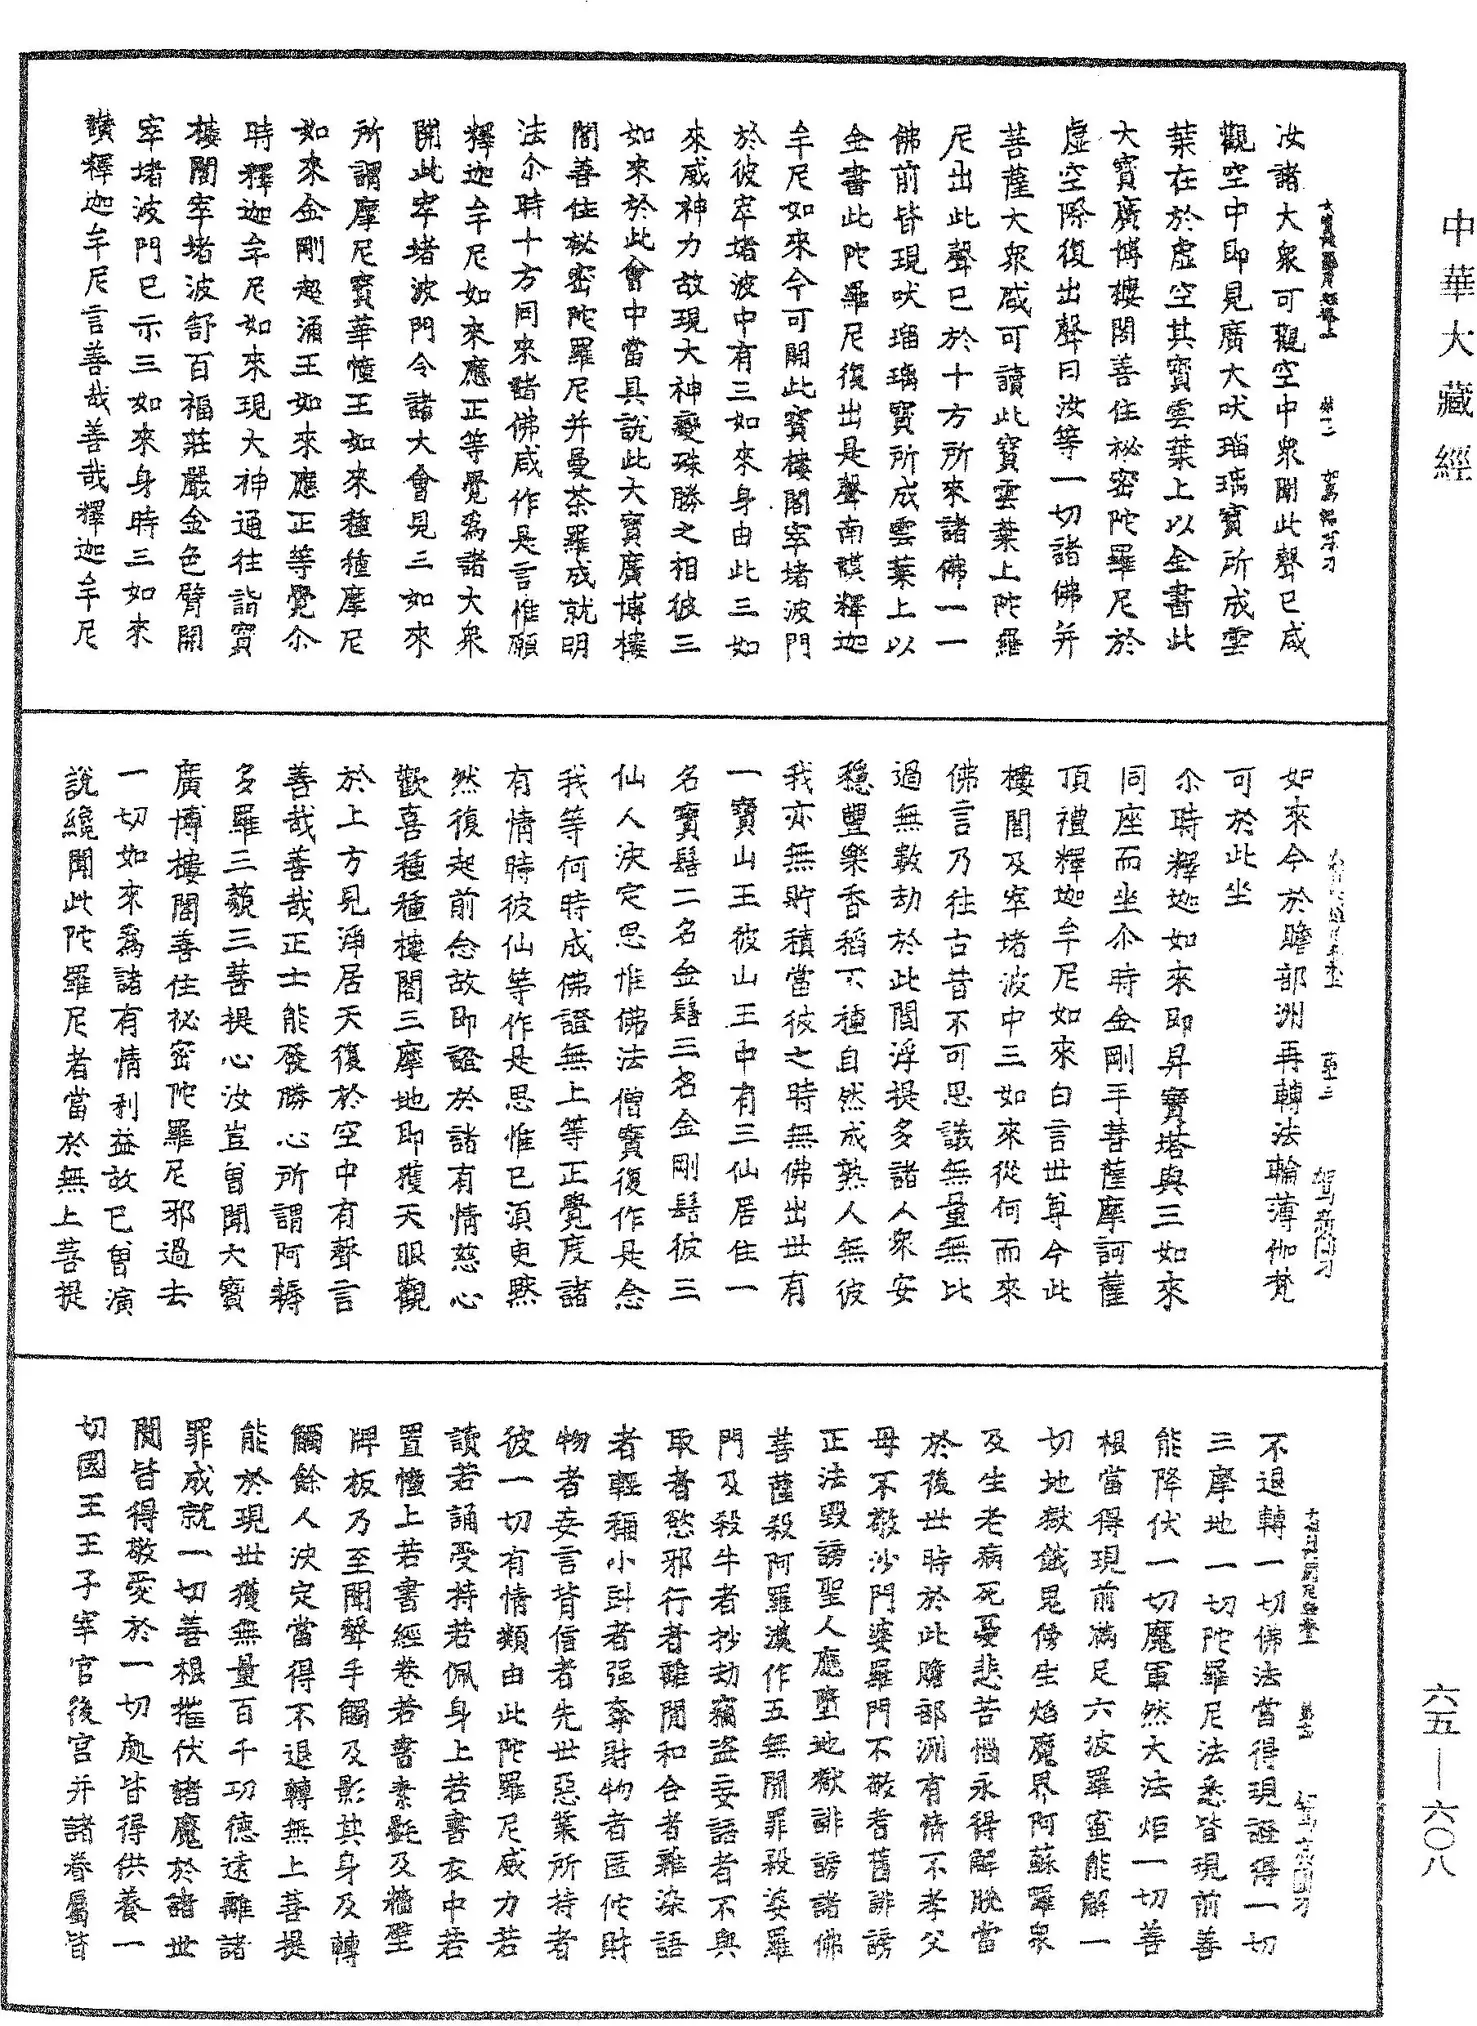 中華大藏經
汝諸大衆可觀空中衆聞此聲已咸
觀空中即見廣大吠瑠璃寶所成雲
葉在於虛空其寶雲葉上以金書此
大寶廣博樓閣善住祕密陀羅尼於
虛空際復出聲曰汝等一切諸佛并
菩薩大衆咸可讀此寶雲葉上陀羅
尼出此聲已於十方所來諸佛一一
佛前皆現吠瑠璃寶所成雲葉上以
金書此陀羅尼復出是聲南謨釋迦
牟尼如來今可開此寶樓閣窣堵波門
於彼窣堵波中有三如來身由此三如
來威神力故現大神變殊勝之相彼三
如來於此會中當具說此大寶廣博樓
閣善住祕密陀羅尼并曼荼羅成就明
法尒時十方同來諸佛咸作是言惟願
釋迦牟尼如來應正等覺爲諸大衆
開此窣堵波門令諸大會見三如來
所謂摩尼寶華幢王如來種種摩尼
如來金剛起涌王如來應正等覺尒
時釋迦牟尼如來現大神通往詣寶
樓閣窣堵波舒百福莊嚴金色臂開
窣堵波門已示三如來身時三如來
讃釋迦牟尼言善哉善哉釋迦牟尼
如來今於贍部洲再轉法輪薄伽梵
可於此坐
尒時釋迦如來即昇寶塔與三如來
同座而坐尒時金剛手菩薩摩訶薩
頂禮釋迦牟尼如來白言世尊今此
樓閣及窣堵波中三如來從何而來
佛言乃往古昔不可思議無量無比
過無數劫於此閻浮提多諸人衆安
穩豐樂香稻不種自然成熟人無彼
我亦無貯積當彼之時無佛出世有
一寶山王彼山王中有三仙居住一
名寶髻二名金髻三名金剛髻彼三
仙人決定思惟佛法僧寶復作是念
我等何時成佛證無上等正覺度諸
有情時彼仙等作是思惟已須臾黙
然復起前念故即證於諸有情慈心
歡喜種種樓閣三摩地即獲天眼觀
於上方見淨居天復於空中有聲言
善哉善哉正士能發勝心所謂阿耨
多羅三藐三菩提心汝豈曾聞大寶
廣博樓閣善住祕密陀羅尼邪過去
一切如來爲諸有情利益故已曾演
說纔聞此陀羅尼者當於無上菩提
不退轉一切佛法當得現證得一切
三摩地一切陀羅尼法悉皆現前善
能降伏一切魔軍然大法炬一切善
根當得現前滿足六波羅蜜能解一
切地獄餓鬼傍生焰魔界阿蘇羅衆
及生老病死憂悲苦惱永得解脫當
於後世時於此贍部洲有情不孝父
母不敬沙門婆羅門不敬耆舊誹謗
正法毀謗聖人應墮地獄誹謗諸佛
菩薩殺阿羅漢作五無間罪殺婆羅
門及殺牛者抄劫竊盜妄語者不與
取者慾邪行者離間和合者雜染語
者輕秤小斗者强奪財物者匿佗財
物者妄言背信者先世惡業所持者
彼一切有情類由此陀羅尼威力若
讀若誦受持若佩身上若書衣中若
置幢上若書經卷若書素㲲及牆壁
牌板乃至聞聲手觸及影其身及轉
觸餘人決定當得不退轉無上菩提
能於現世獲無量百千功德遠離諸
罪成就一切善根摧伏諸魔於諸世
間皆得敬愛於一切處皆得供養一
切國王王子宰官後宮并諸眷屬皆
六五—六〇八